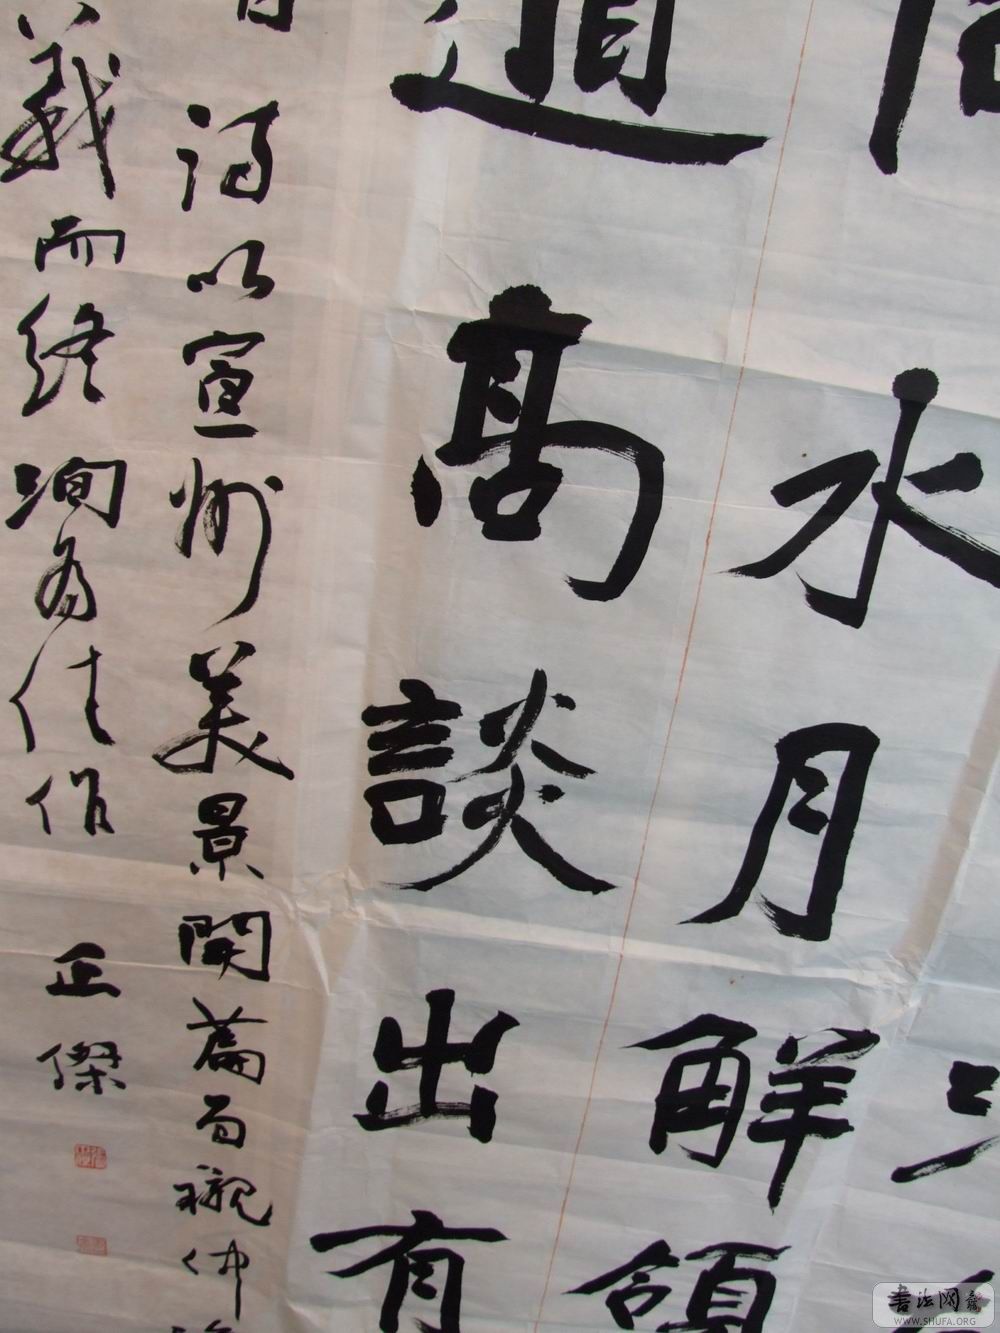 水月解領
道高談出有
詩以宣州美景開篇而襯仲
義而終洵為佳作 正傑
書法网
WWW.SHUFA.ORG